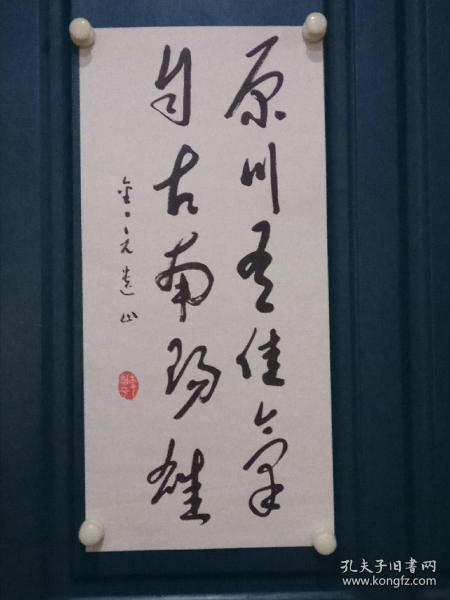 原川有佳氣
自古南陽雄
金·元遺山
孔夫子旧书网
www.kongfz.com